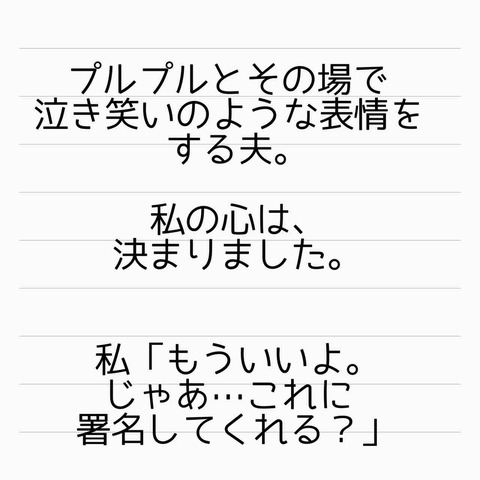 プルプルとその場で
泣き笑いのような表情を
する夫。
私の心は、
決まりました。
私「もういいよ。
じゃあ…これに
署名してくれる？」